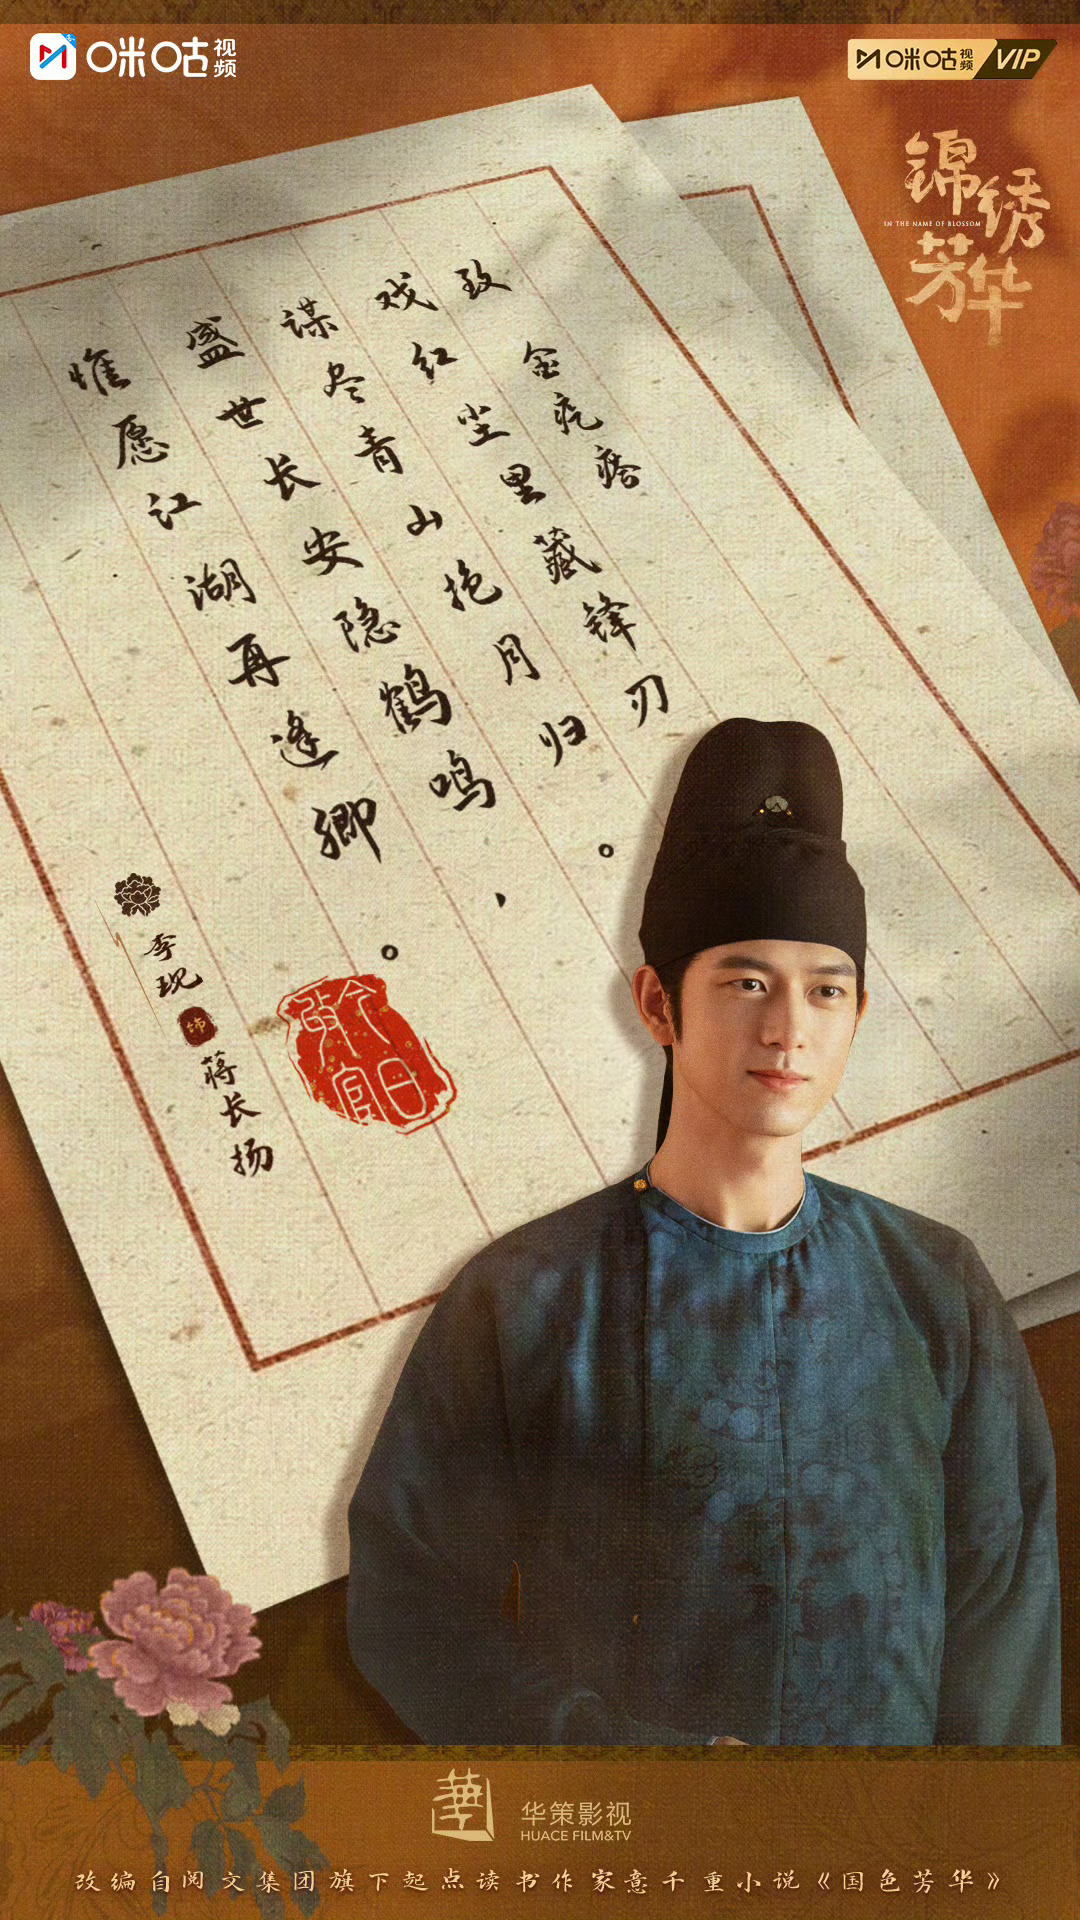 咪咕视频
咪咕视频 VIP
锦绣芳华
IN THE NAME OF BLOSSOM
致 金疙瘩
戏红尘里藏锋刃
谋尽青山抱月归。
盛世长安隐鹤鸣、
惟愿江湖再逢卿。
今日散官
李现 饰 蒋长扬
華
华策影视
HUACE FILM&TV
改编自阅文集团旗下起点读书作家意千重小说《国色芳华》